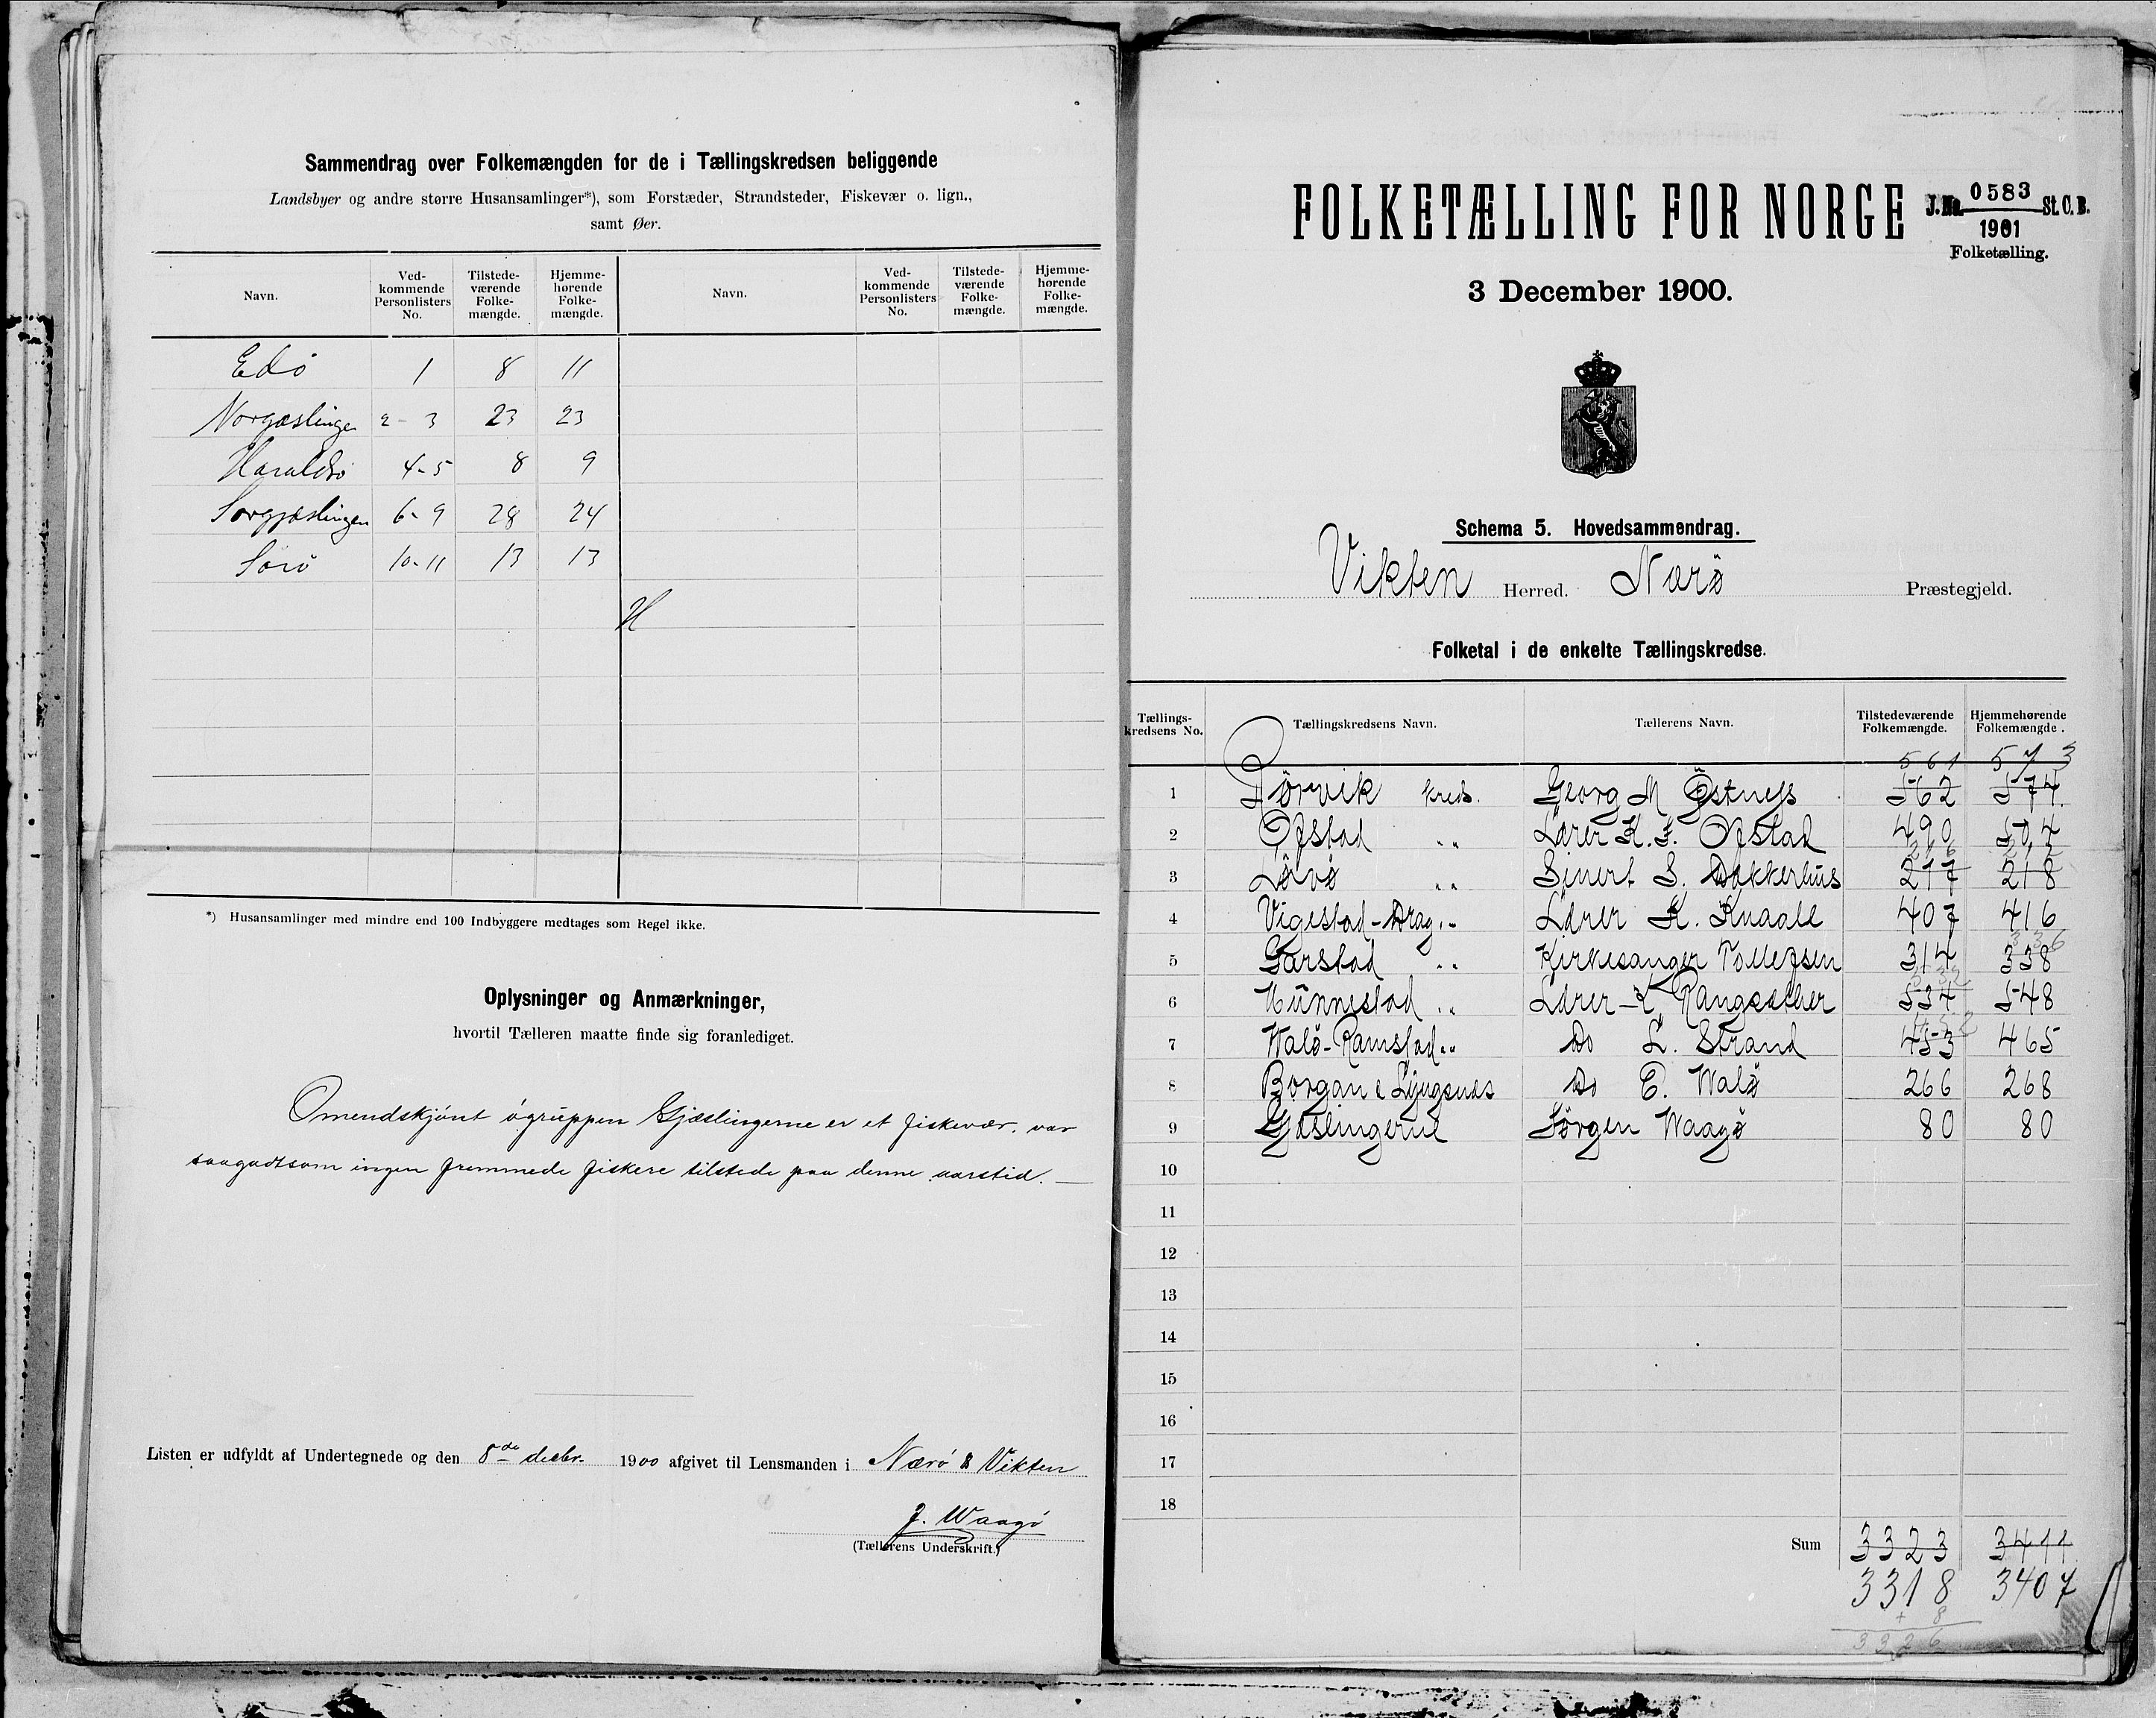 Sammendrag over Folkemængden for de i Tællingskredsen beliggende
Landsbyer og andre større Husansamlinger*), som Forstæder, Strandsteder, Fiskevær o. lign.,
samt Øer.
Navn. Ved-kommende Personlisters No. Tilstede-værende Folke-mængde. Hjemme-hørende Folke-mængde. Navn. Ved-kommende Personlisters No. Tilstede-værende Folke-mængde. Hjemme-hørende Folke-mængde.
Edø 1 8 11
Norgæslingen 2-3 23 23
Haraldsø 4-5 8 9
Sørgjæslingen 6-9 28 24
Sørø 10-11 13 13
*) Husansamlinger med mindre end 100 Indbyggere medtages som Regel ikke.
Oplysninger og Anmærkninger,
hvortil Tælleren maatte finde sig foranlediget.
Omendskjønt øgruppen Gjæslingerne er et fiskevær, var
saagodtsom ingen fremmede fiskere tilstede paa denne aarstid. —
Listen er udfyldt af Undertegnede og den 8de decbr. 1900 afgivet til Lensmanden i Nærø & Vikten
J. Waagø
(Tællerens Underskrift.)
FOLKETÆLLING FOR NORGE
J. No. 0583 St. C. B.
1901
Folketælling.
3 December 1900.
Schema 5. Hovedsammendrag.
Vikten Herred. Nærø Præstegjeld.
Folketal i de enkelte Tællingskredse.
Tællings-kredsens No. Tællingskredsens Navn. Tællerens Navn. Tilstedeværende Folkemængde. Hjemmehørende Folkemængde.
561 573
1 Rørvik Kreds. Georg M Østness 562 574
2 Ofstad " Lærer K. J. Ofstad 490 504
216 212
3 Løvø " Sivert S. Dakkerhus 217 218
4 Vigestad-Drag " Lærer K. Knaale 407 416
336
5 Garstad " Kirkesanger Tollefsen 314 338
532
6 Hunnestad " Lærer K. Rangsæther 534 548
452
7 Walø-Ramstad " Do L. Strand 453 465
8 Borgan & Lyngsnes Do E. Walø 266 268
9 Gæslingerne Jørgen Waagø 80 80
10
11
12
13
14
15
16
17
18
Sum 3323 3411
3318 3407
+ 8
3326